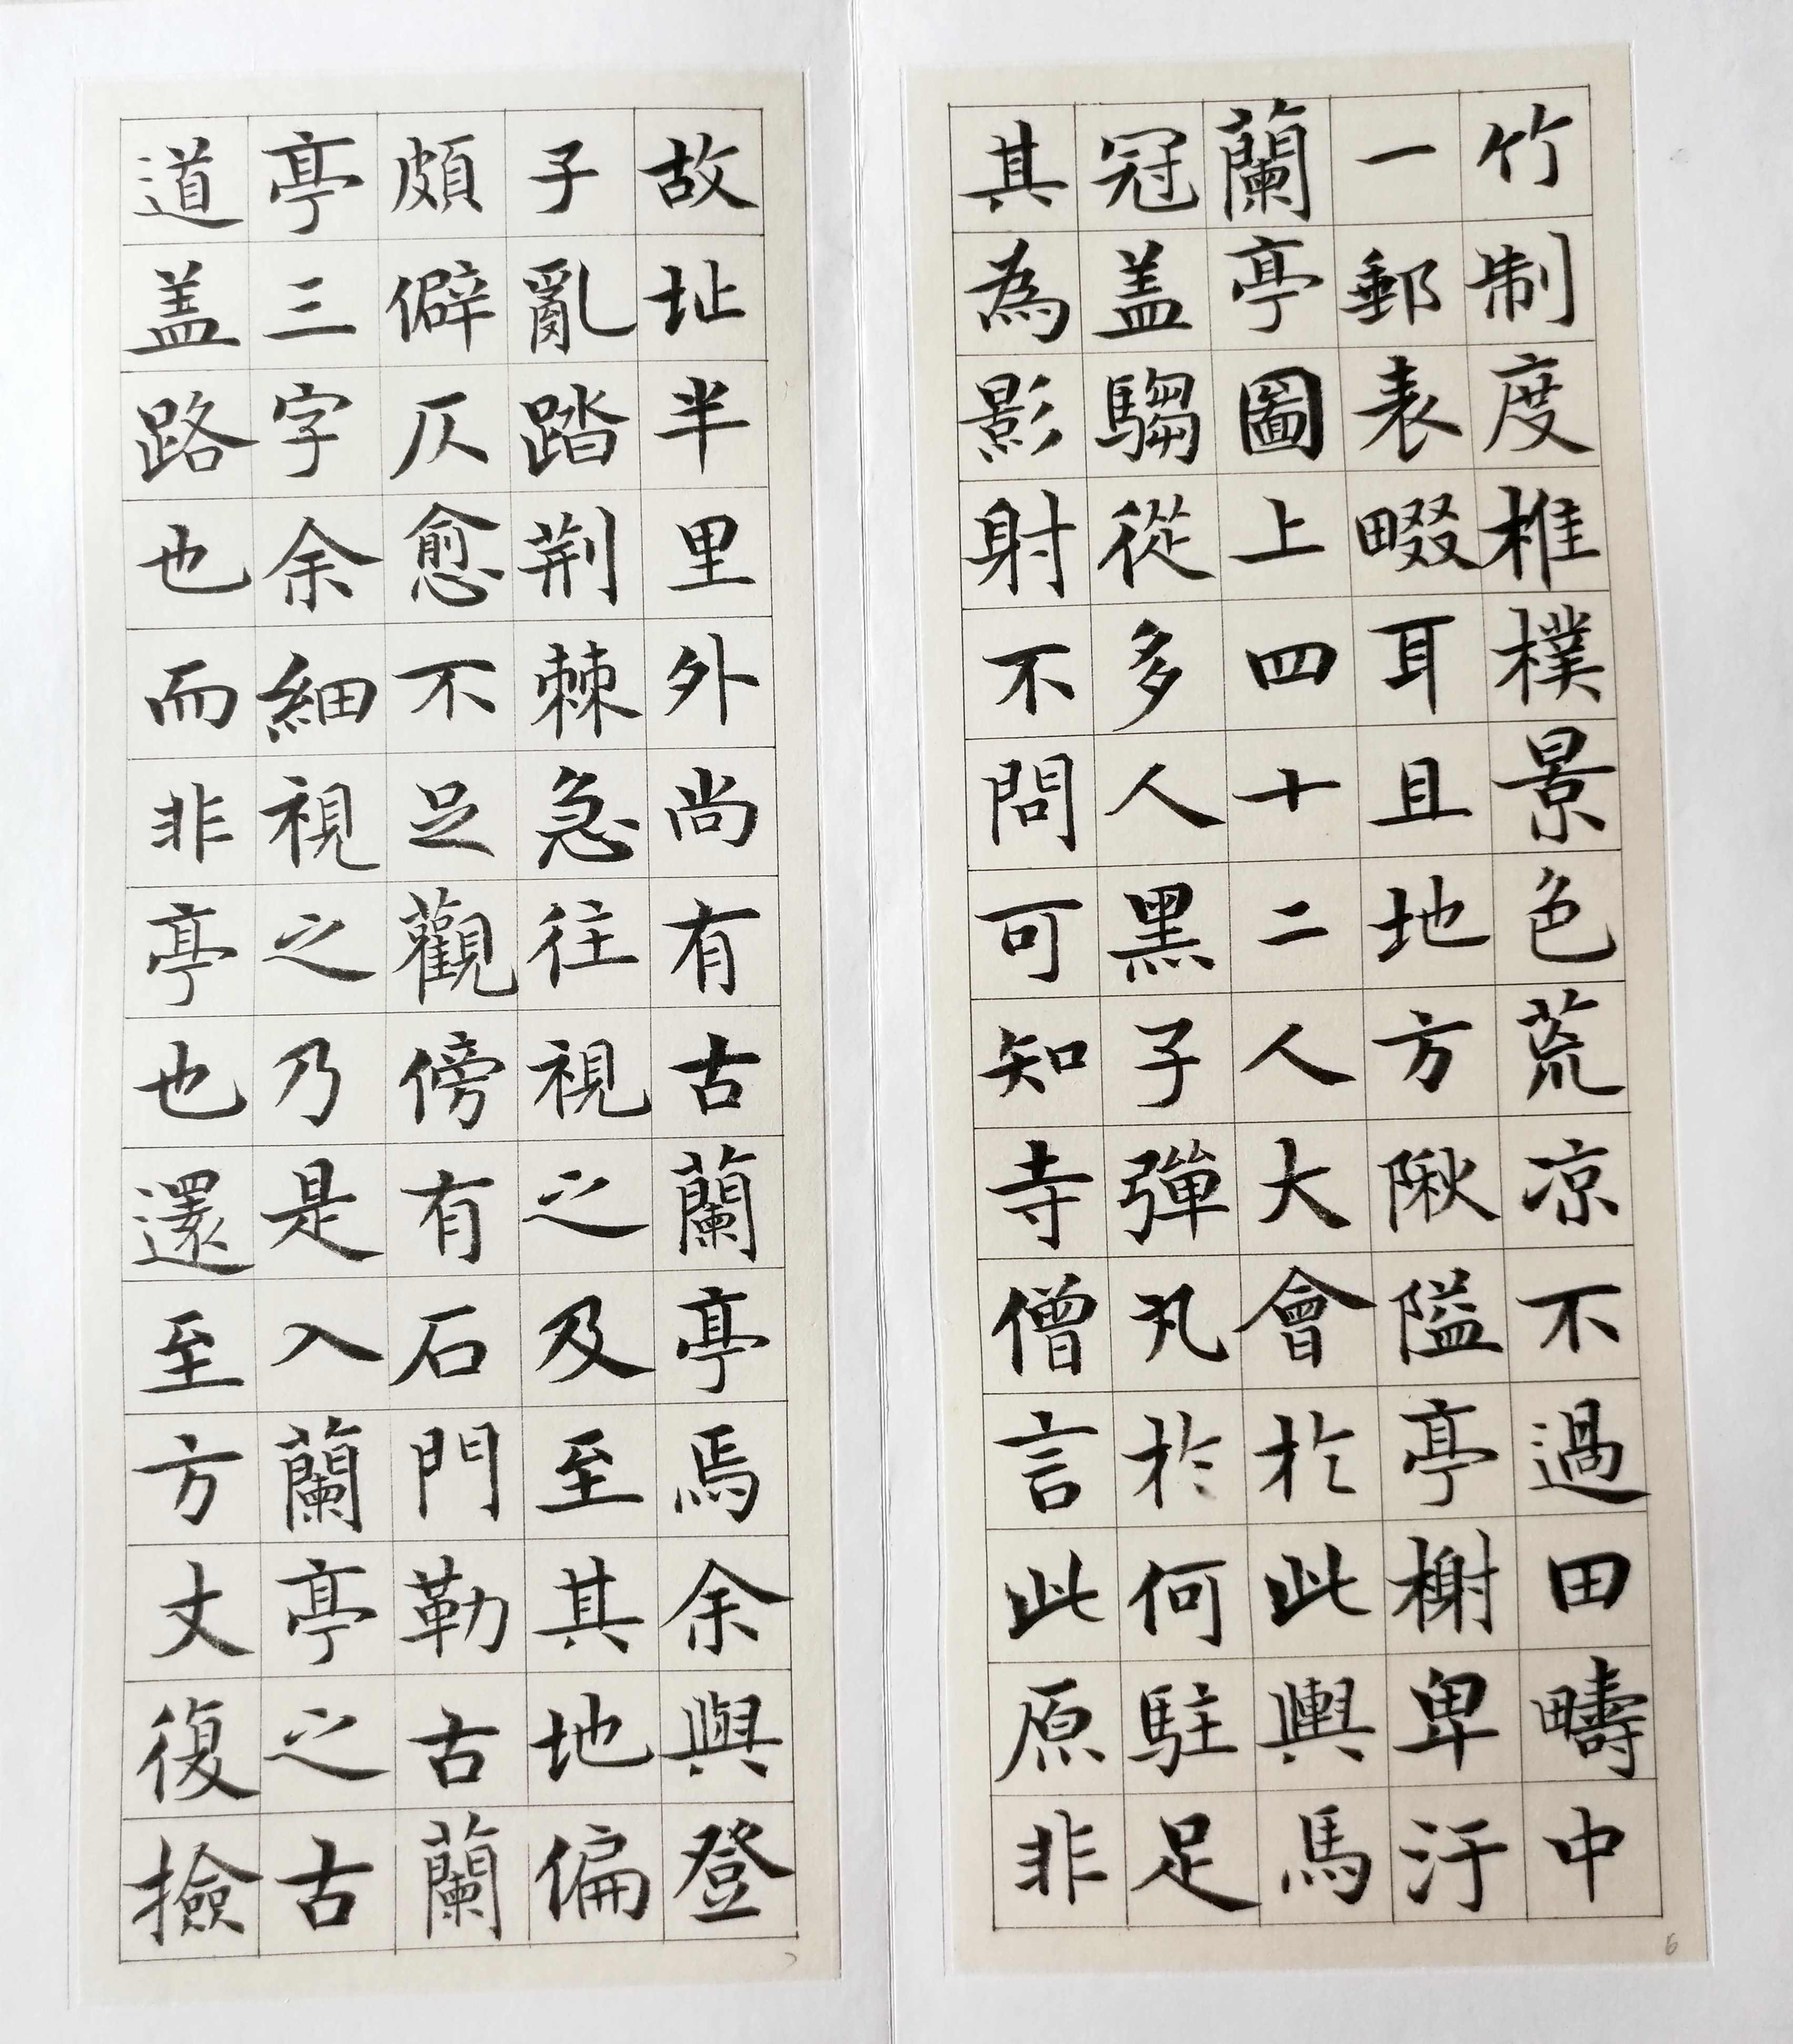 竹制度椎樸景色荒凉不過田疇中
一郵表畷耳且地方陬隘亭榭卑汙
蘭亭圖上四十二人大會於此輿馬
冠盖騶從多人黑子彈丸於何駐足
其為影射不問可知寺僧言此原非
故址半里外尚有古蘭亭焉余與登
子亂踏荆棘急往視之及至其地偏
頗僻仄愈不足觀傍有石門勒古蘭
亭三字余細視之乃是入蘭亭之古
道盖路也而非亭也還至方丈復撿
6